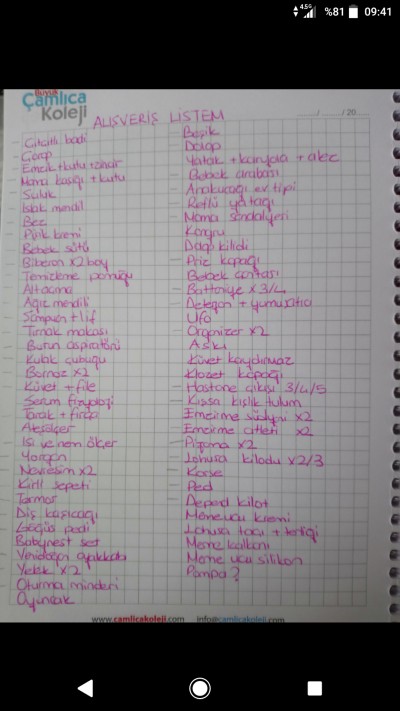 4.5G %81 09:41
Büyük
Çamlıca
Koleji
ALIŞVERİŞ LİSTEM
..../..../20....
- Çıtçıtlı badi
- Çorap
- Emzik + kutu + zincir
- Mama kaşığı + kutu
- Suluk
- Islak mendil
- Bez
- Pişik kremi
- Bebek sütü
- Biberon x2 boy
- Temizleme pamuğu
- Alt açma
- Ağız mendili
- Şampuan + lif
- Tırnak makası
- Burun aspiratörü
- Kulak çubuğu
- Bornoz x2
- Küvet + file
- Serum fizyoloji
- Tarak + fırça
- Ateşölçer
- Isı ve nem ölçer
- Yorgan
- Nevresim x2
- Kirli sepeti
- Tarmor
- Diş kaşıcağı
- Göğüs pedi
- Babynest set
- Yenidoğan ayakkabı
- Yelek x2
- Oturma minderi
- Oyuncak
- Beşik
- Dolap
- Yatak + karyola + alez
- Bebek arabası
- Anakucağı ev tipi
- Reflü yatağı
- Mama sandalyesi
- Kanguru
- Dolap kilidi
- Priz kapağı
- Bebek çantası
- Battaniye x 3/4
- Deterjan + yumuşatıcı
- Ufo
- Organizer x2
- Askı
- Küvet kaydırmaz
- Klozet kapağı
- Hastane çıkışı 3/4/5
- Kışsa kışlık tulum
- Emzirme sütyeni x2
- Emzirme atleti x2
- Pijama x2
- Lohusa kilodu x2/3
- Korse
- Ped
- Depend kilot
- Meme ucu kremi
- Lohusa tacı + terliği
- Meme kalkanı
- Meme ucu silikon
- Pompa ?
www.camlicakoleji.com info@camlicakoleji.com